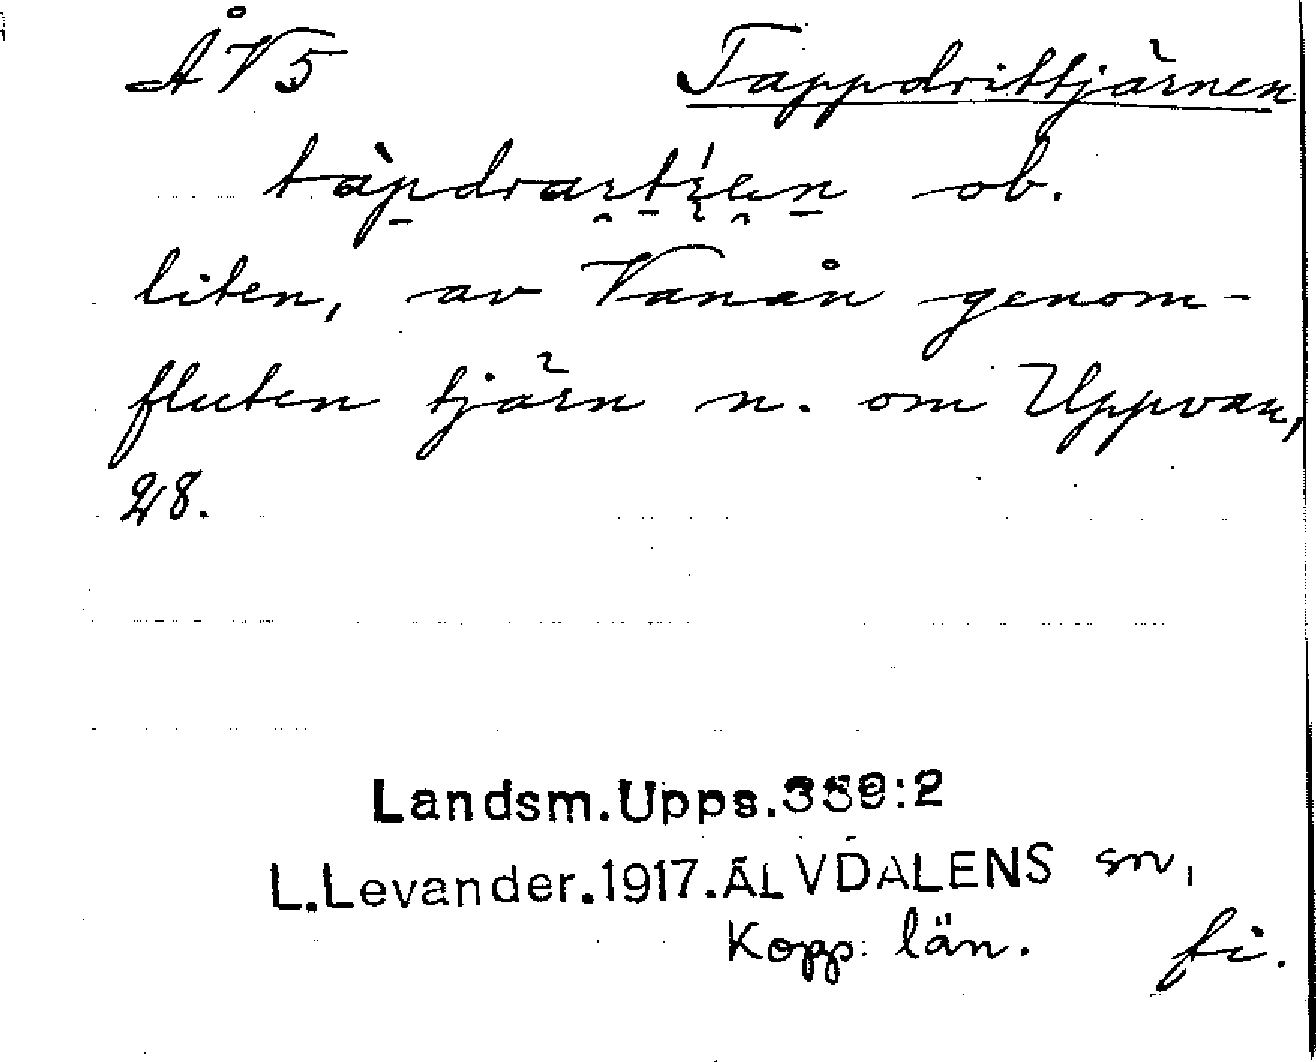 ÅV5 Tappdrittjärnen
ob.
liten, av Vanån genom-
fluten tjärn n. om Uppvan,
28.
Landsm.Upps.339:2
L.Levander.1917.ÄLVDALENS sn,
Kopp: län. fi.